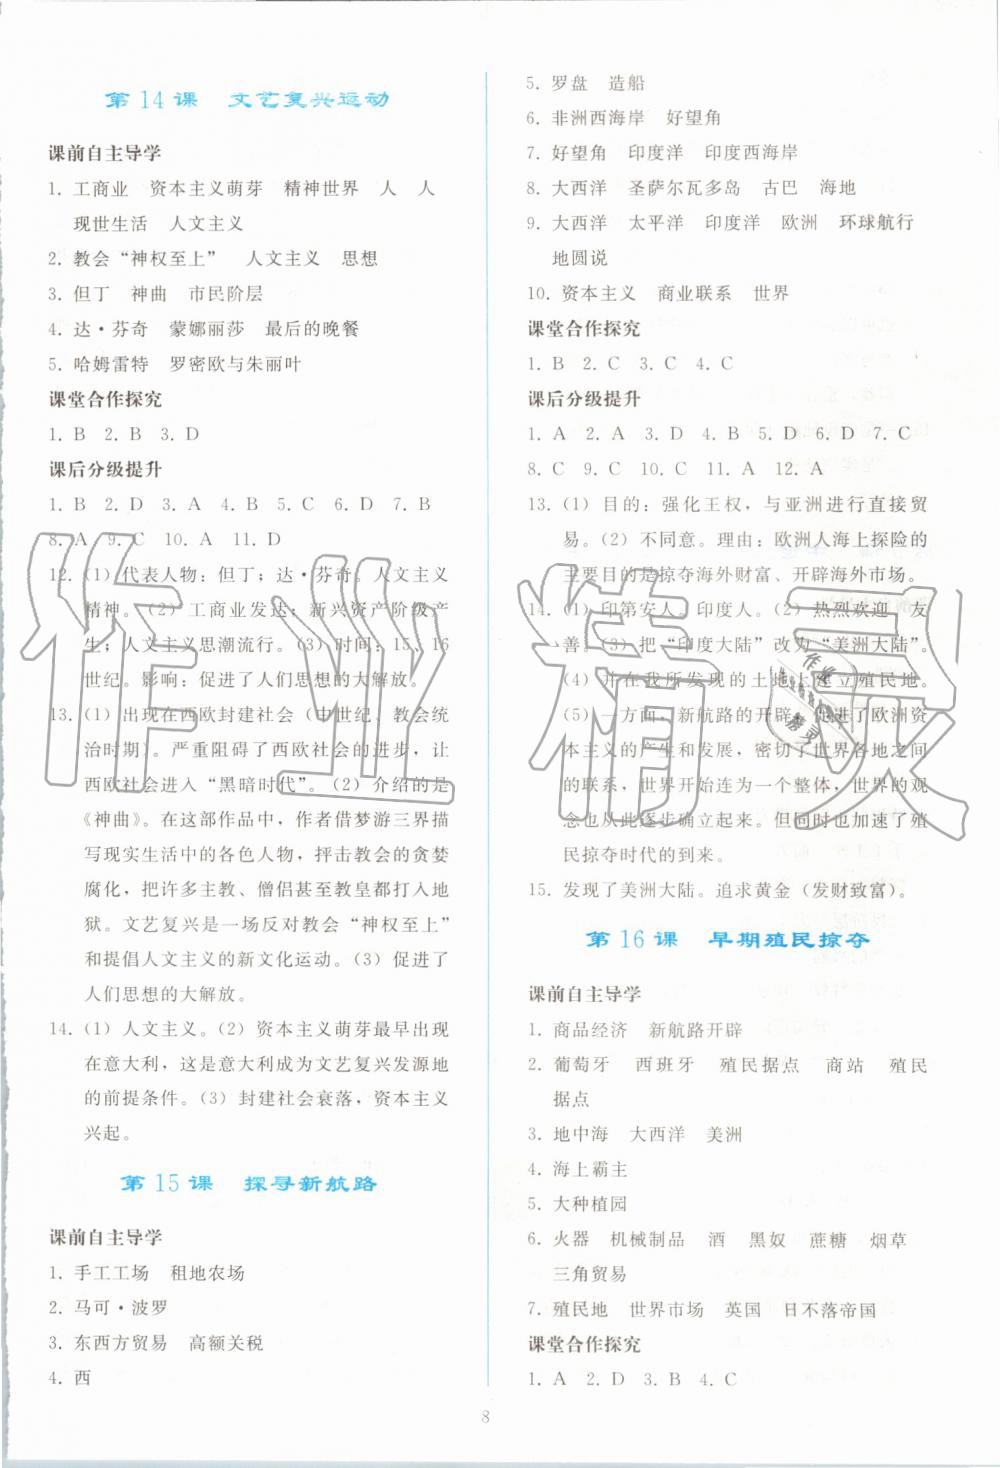 第 14 课　文艺复兴运动
课前自主导学
1. 工商业　资本主义萌芽　精神世界　人　人
现世生活　人文主义
2. 教会“神权至上”　人文主义　思想
3. 但丁　神曲　市民阶层
4. 达·芬奇　蒙娜丽莎　最后的晚餐
5. 哈姆雷特　罗密欧与朱丽叶
课堂合作探究
1. B　2. B　3. D
课后分级提升
1. B　2. D　3. A　4. B　5. C　6. D　7. B
8. A　9. C　10. A　11. D
12. (1) 代表人物：但丁；达·芬奇。人文主义
精神。(2) 工商业发达；新兴资产阶级产
生；人文主义思潮流行。(3) 时间：15、16
世纪。影响：促进了人们思想的大解放。
13. (1) 出现在西欧封建社会（中世纪、教会统
治时期）。严重阻碍了西欧社会的进步，让
西欧社会进入“黑暗时代”。(2) 介绍的是
《神曲》。在这部作品中，作者借梦游三界描
写现实生活中的各色人物，抨击教会的贪婪
腐化，把许多主教、僧侣甚至教皇都打入地
狱。文艺复兴是一场反对教会“神权至上”
和提倡人文主义的新文化运动。(3) 促进了
人们思想的大解放。
14. (1) 人文主义。(2) 资本主义萌芽最早出现
在意大利，这是意大利成为文艺复兴发源地
的前提条件。(3) 封建社会衰落，资本主义
兴起。
第 15 课　探寻新航路
课前自主导学
1. 手工工场　租地农场
2. 马可·波罗
3. 东西方贸易　高额关税
4. 西
5. 罗盘　造船
6. 非洲西海岸　好望角
7. 好望角　印度洋　印度西海岸
8. 大西洋　圣萨尔瓦多岛　古巴　海地
9. 大西洋　太平洋　印度洋　欧洲　环球航行
地圆说
10. 资本主义　商业联系　世界
课堂合作探究
1. B　2. C　3. C　4. C
课后分级提升
1. A　2. A　3. D　4. B　5. D　6. D　7. C
8. C　9. C　10. C　11. A　12. A
13. (1) 目的：强化王权，与亚洲进行直接贸
易。(2) 不同意。理由：欧洲人海上探险的
主要目的是掠夺海外财富、开辟海外市场。
14. (1) 印第安人。印度人。(2) 热烈欢迎，友
善。(3) 把“印度大陆”改为“美洲大陆”。
(4) 并在我所发现的土地上建立殖民地。
(5) 一方面，新航路的开辟，促进了欧洲资
本主义的产生和发展，密切了世界各地之间
的联系，世界开始连为一个整体，世界的观
念也从此逐步确立起来。但同时也加速了殖
民掠夺时代的到来。
15. 发现了美洲大陆。追求黄金（发财致富）。
第 16 课　早期殖民掠夺
课前自主导学
1. 商品经济　新航路开辟
2. 葡萄牙　西班牙　殖民据点　商站　殖民
据点
3. 地中海　大西洋　美洲
4. 海上霸主
5. 大种植园
6. 火器　机械制品　酒　黑奴　蔗糖　烟草
三角贸易
7. 殖民地　世界市场　英国　日不落帝国
课堂合作探究
1. A　2. D　3. B　4. C
8
作业精灵